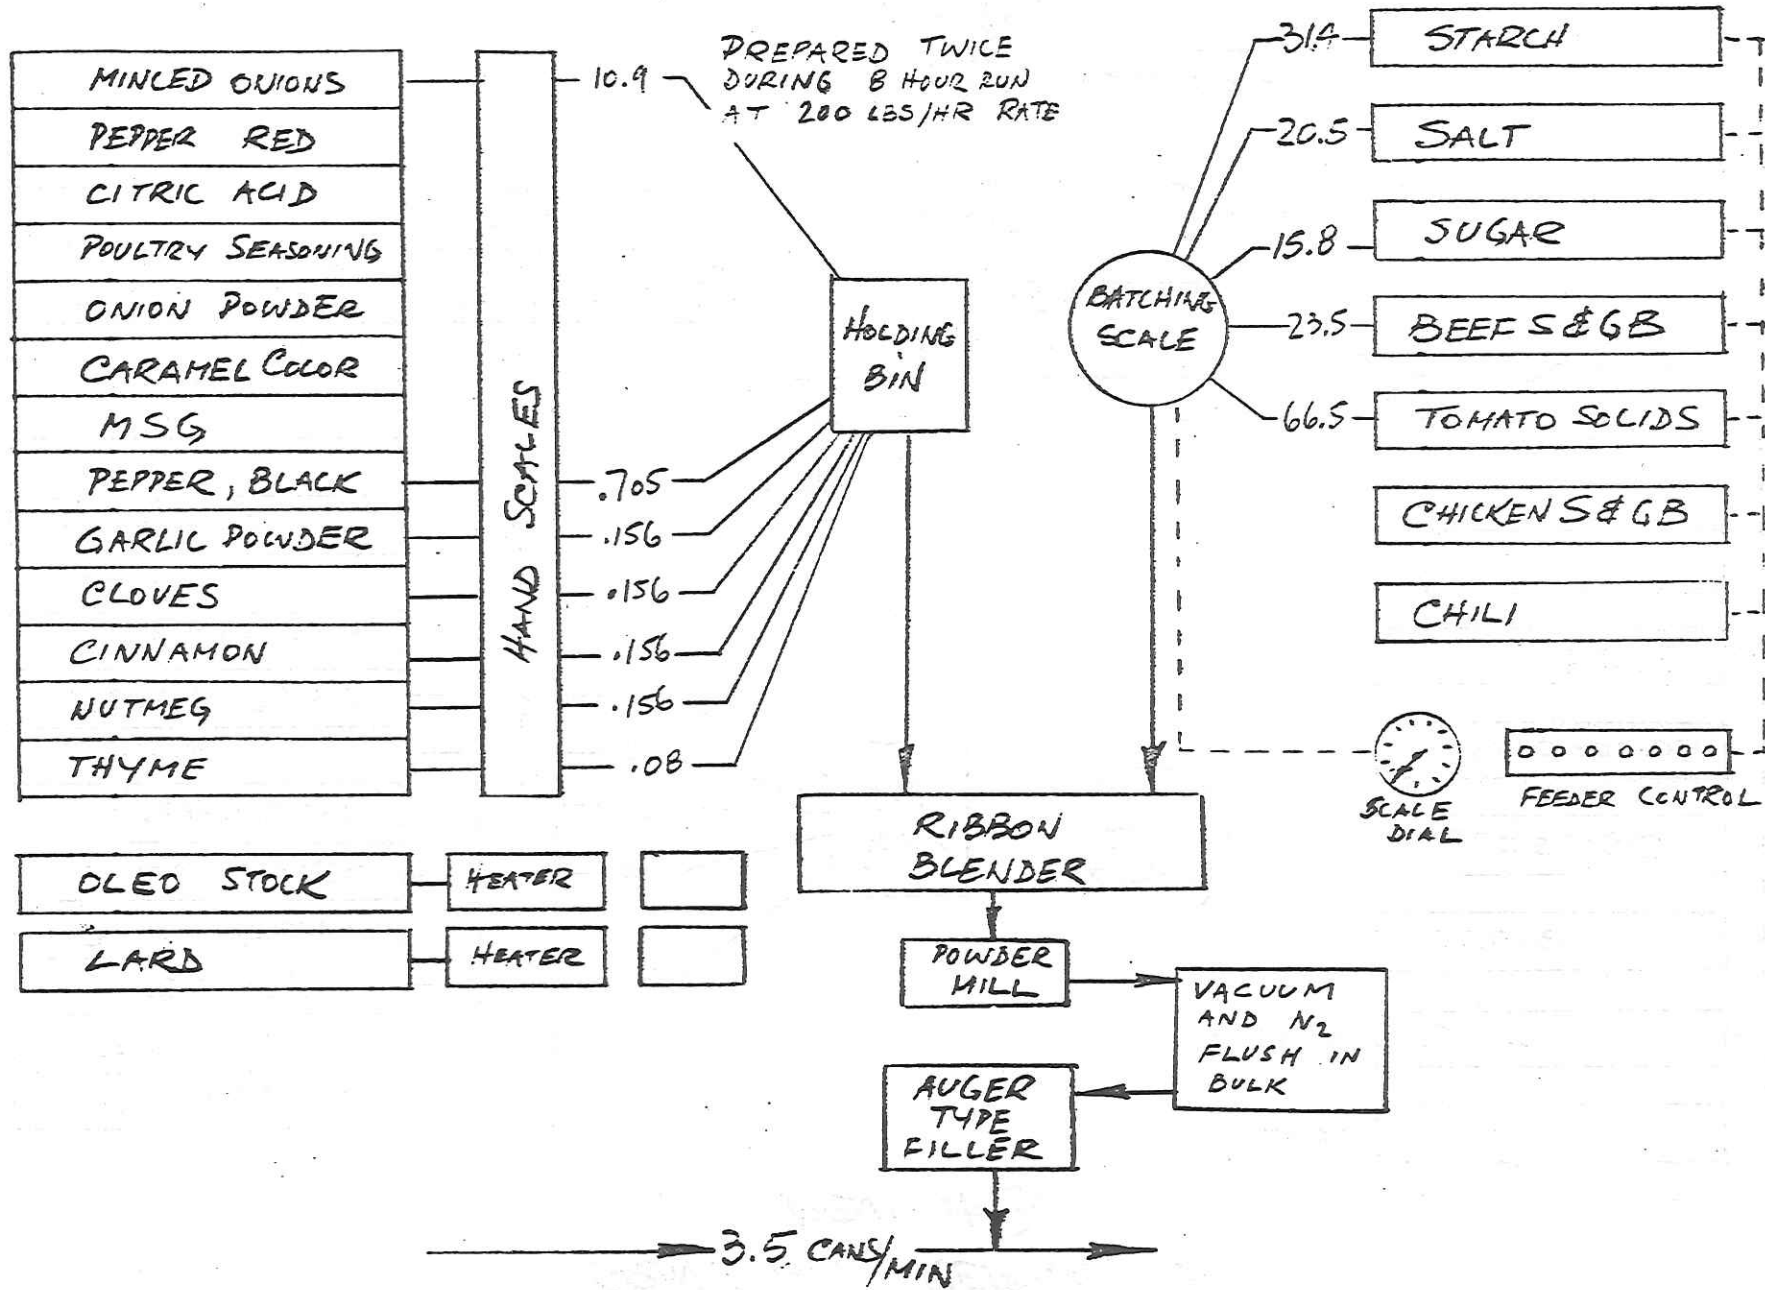 MINCED ONIONS
PEPPER RED
CITRIC ACID
POULTRY SEASONING
ONION POWDER
CARAMEL COLOR
MSG
PEPPER, BLACK
GARLIC POWDER
CLOVES
CINNAMON
NUTMEG
THYME
HAND SCALES
10.9
.705
.156
.156
.156
.156
.08
PREPARED TWICE
DURING 8 HOUR RUN
AT 200 LBS/HR RATE
HOLDING
BIN
BATCHING
SCALE
31.4
20.5
15.8
23.5
66.5
STARCH
SALT
SUGAR
BEEF S & GB
TOMATO SOLIDS
CHICKEN S & GB
CHILI
SCALE
DIAL
FEEDER CONTROL
OLEO STOCK
HEATER
LARD
HEATER
RIBBON
BLENDER
POWDER
MILL
VACUUM
AND N2
FLUSH IN
BULK
AUGER
TYPE
FILLER
3.5 CANS/MIN